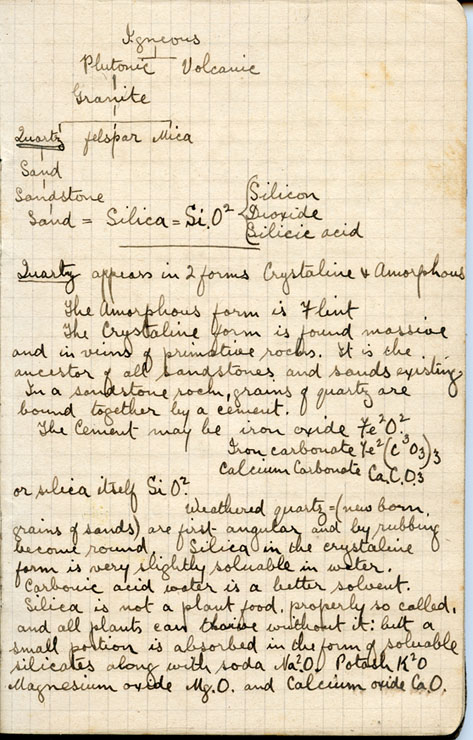 Igneous
Plutonic Volcanic
Granite
Quartz felspar Mica
Sand
Sandstone
Sand = Silica = Si.O² { Silicon
Dioxide
Silicic acid
Quartz appears in 2 forms Crystaline & Amorphous
The Amorphous form is Flint
The Crystaline form is found massive
and in viens of primative rocks. It is the
ancestor of all sandstones and sands existing
In a sandstone rock, grains of quartz are
bound together by a cement.
The Cement may be iron oxide Fe²O².
Iron carbonate Fe²(C³O3)3
Calcium Carbonate Ca.C.O3
or silica itself Si O².
Weathered quartz = (new born
grains of sands) are first angular and by rubbing
become round. Silica in the crystaline
form is very slightly soluable in water.
Carbonic acid water is a better solvent.
Silica is not a plant food, properly so called,
and all plants can thrive without it: but a
small portion is absorbed in the form of soluable
silicates along with soda Na²O. Potash K²O
Magnesium oxide Mg.O. and Calcium oxide Ca.O.